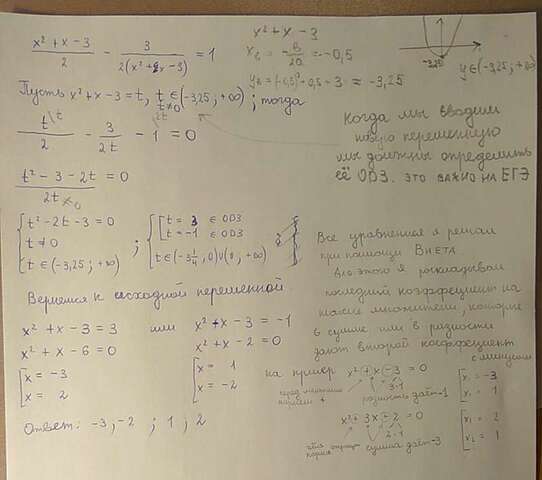 x² + x - 3
x² + x - 3 / 2 - 3 / 2(x² + x - 3) = 1
x₀ = -b/2a = -0,5
y₀ = (-0,5)² - 0,5 - 3 = -3,25
-3,25
y ∈ (-3,25; +∞)
Пусть x² + x - 3 = t, t ∈ (-3,25; +∞); тогда
t ≠ 0
t/2 - 3/2t - 1 = 0
Когда мы вводим
новую переменную
мы должны определить
её ОДЗ. это важно на ЕГЭ
t² - 3 - 2t / 2t ≠ 0 = 0
t² - 2t - 3 = 0
t ≠ 0
t ∈ (-3,25; +∞)
;
t = 3 ∈ ОДЗ
t = -1 ∈ ОДЗ
t ∈ (-3 1/4, 0) ∪ (0; +∞)
Все уравнения я решал
при помощи Виета
Для этого я раскладывал
последний коэффициент на
такие множители, которые
в сумме или в разности
дают второй коэффициент
с минусом
Вернемся к исходной переменной.
x² + x - 3 = 3 или x² + x - 3 = -1
x² + x - 6 = 0 x² + x - 2 = 0
x = -3 x = 1
x = 2 x = -2
на пример x² + x - 3 = 0
3·1
разность даёт -1
x₁ = -3
x₂ = 1
x² + 3x - 2 = 0
2·1
сумма даёт -3
x₁ = -2
x₂ = 1
Ответ: -3, -2; 1; 2